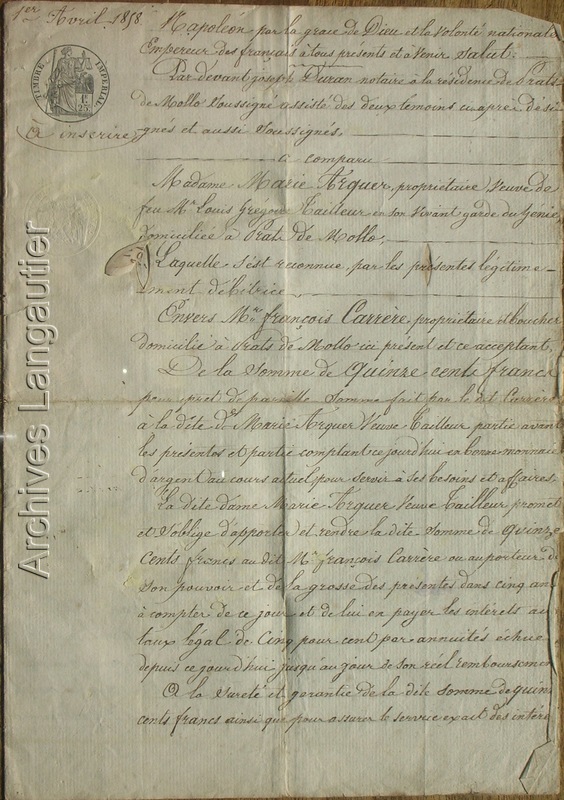 1er Avril 1858.
Napoléon par la grace de Dieu et la volonté nationale
Empereur des français à tous présents et à venir salut.
TIMBRE IMPERIAL
Par devant Joseph Duran notaire à la résidence de Prats
de Mollo soussigné assisté des deux temoins ci après dési
à inserire
gnés et aussi soussignés,
a comparu
Madame Marie Arquer, propriétaire, Veuve de
feu Mr Louis Gregoire Tailleur en son vivant garde du Génie,
domiciliée à Prats de Mollo,
Laquelle s'est reconnue, par les présentes légitime-
ment débitrice
Envers Mr françois Carrère, propriétaire et boucher
domicilié à Prats de Mollo ici présent et ce acceptant,
De la Somme de quinze cents francs
pour prêt de pareille somme fait par le dit Carrère
à la dite de Marie Arquer Veuve Tailleur partie avant
les présentes et partie comptant ce jourd'hui en bonne monnaie
d'argent au cours actuel pour servir à ses besoins et affaires.
La dite dame Marie Arquer Veuve Tailleur promet
et s'oblige d'apporter et rendre la dite somme de quinze
Cents francs au dit Mr françois Carrère ou au porteur de
son pouvoir et de la grosse des présentes dans cinq ans
à compter de ce jour et de lui en payer les interets au
taux légal de Cinq pour cent par annuités échue
depuis ce jourd'hui jusqu'au jour de son réel remboursemen
A la sureté et garantie de la dite somme de quinze
cents francs ainsi que pour assurer le service exact des intére
Archives Langautier